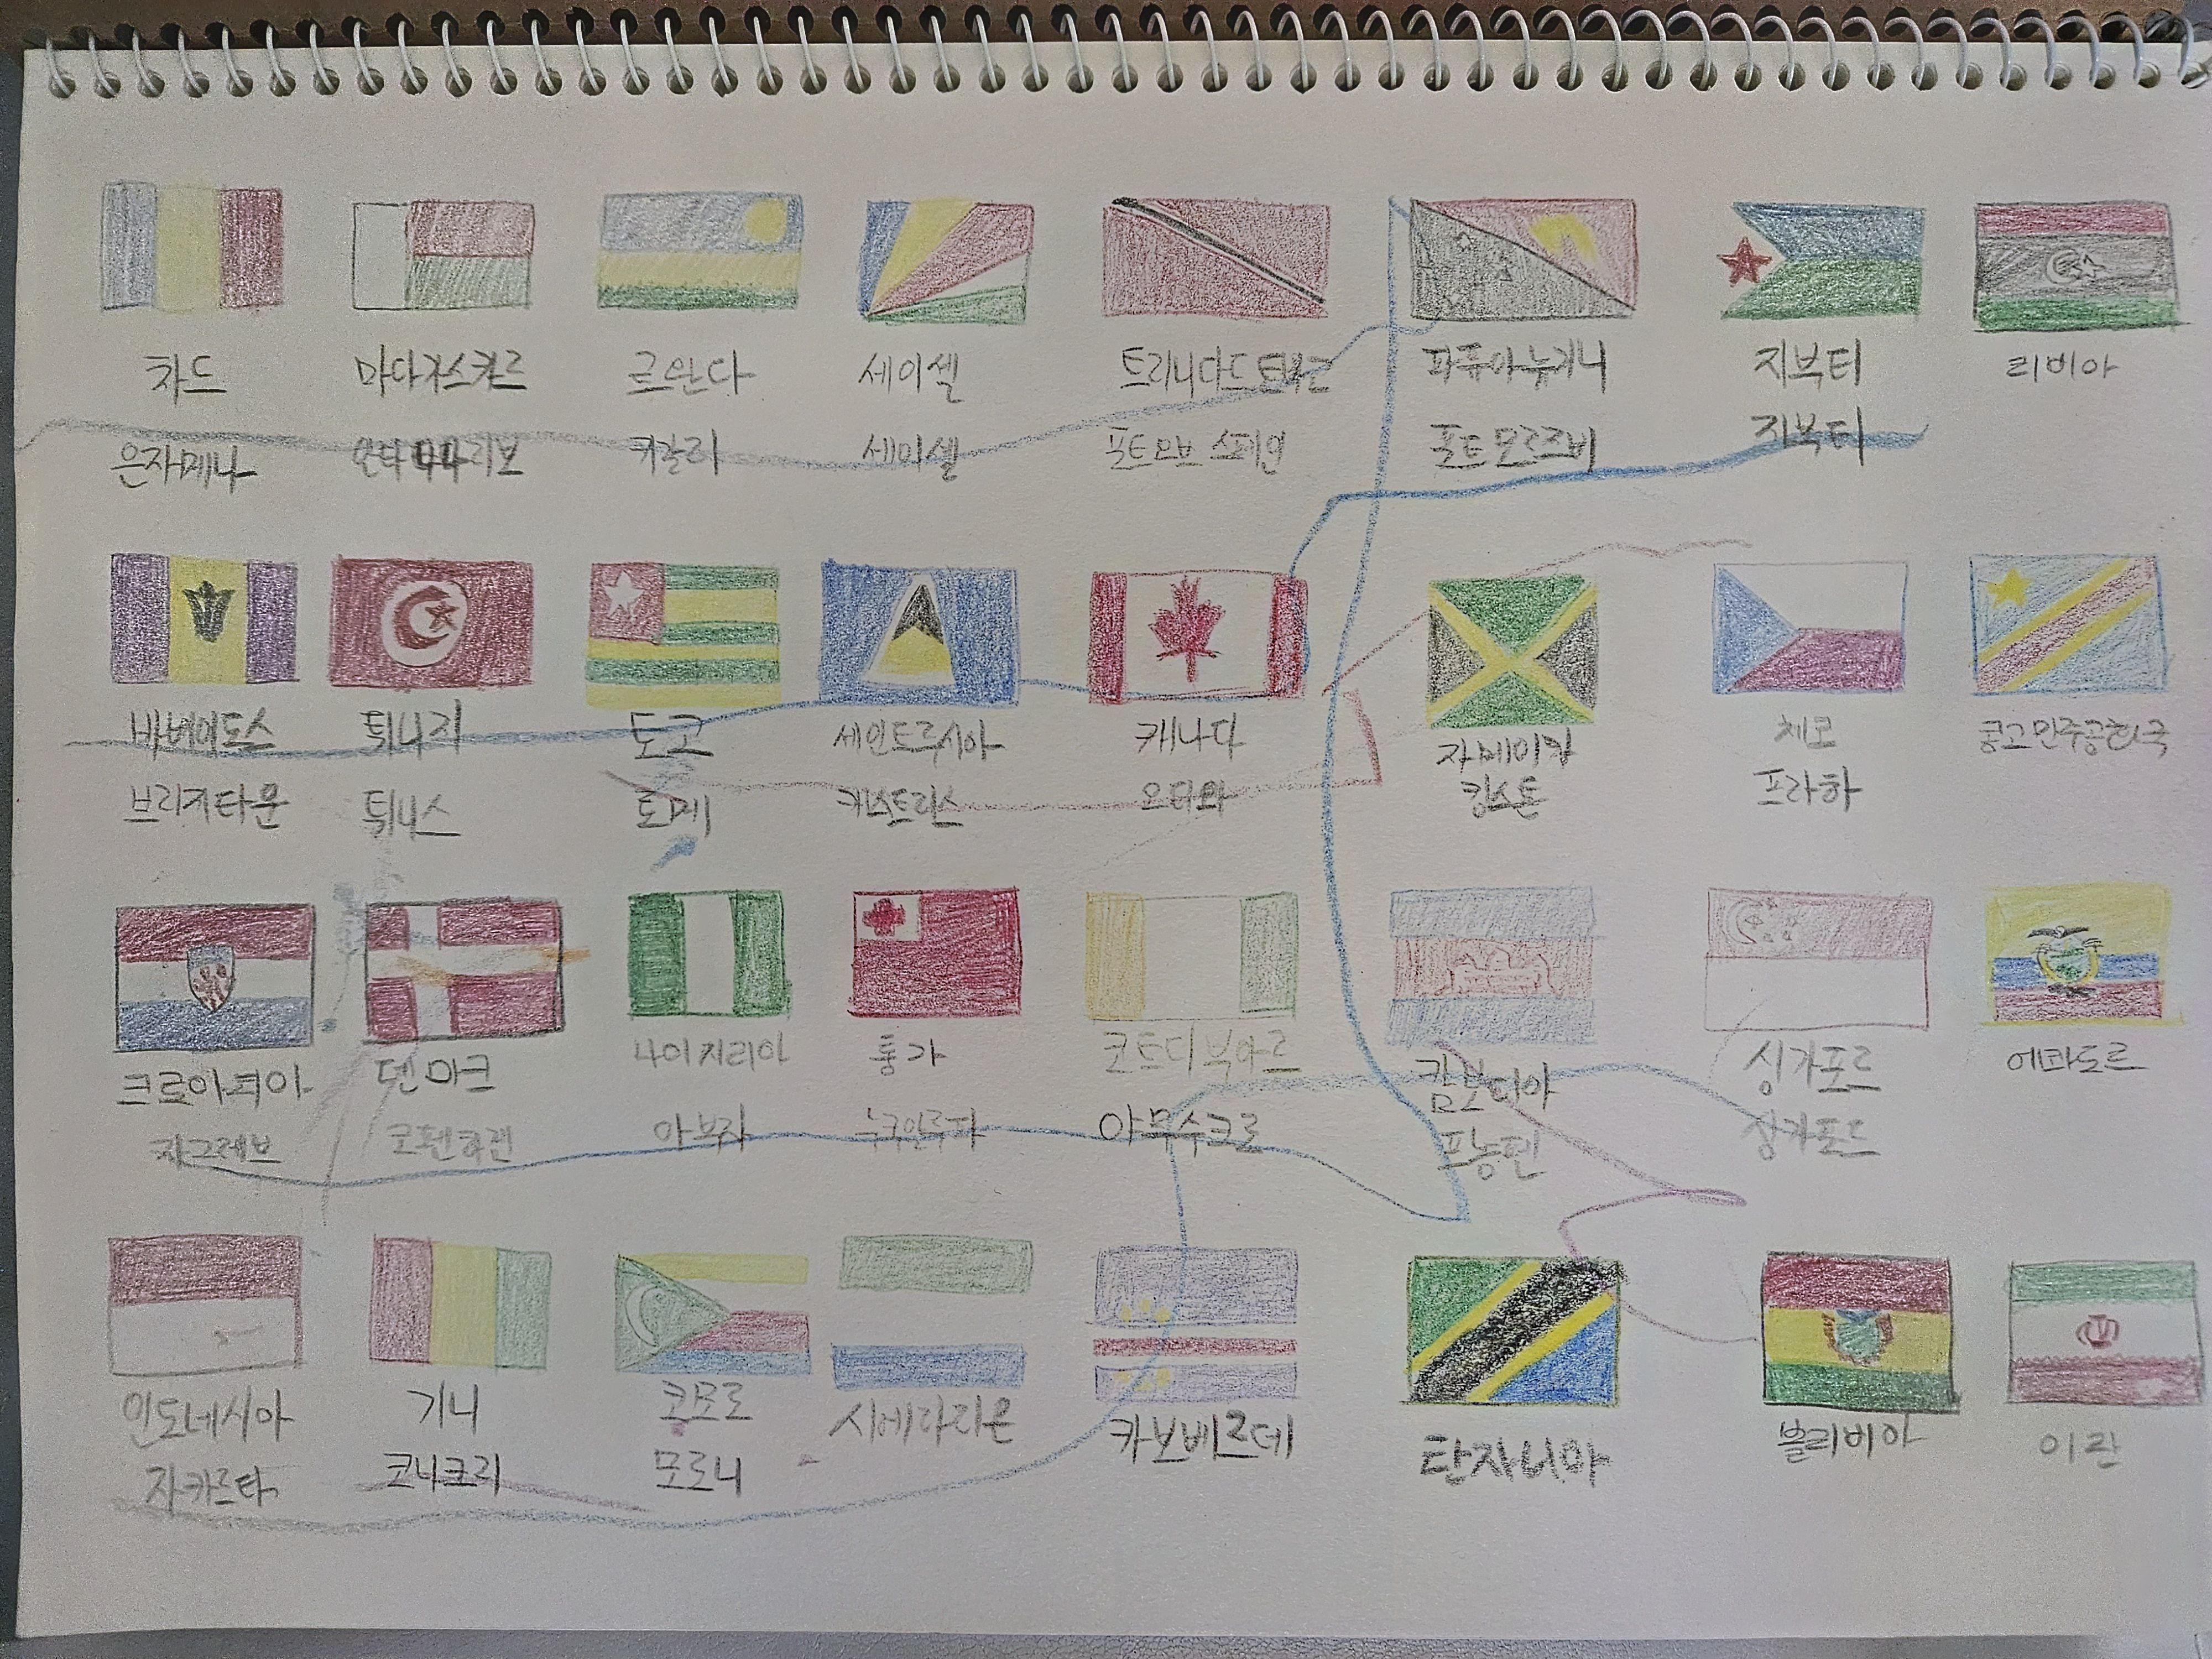 차드 마다가스카르 르완다 세이셸 트리니다드토바고 파퓨아뉴기니 지부티 리비아
은자메나 안타나나리보 키갈리 세이셸 포트오브 스페인 포트모르즈비 지부티
바베이도스 튀니지 토고 세인트루시아 캐나다 자메이카 체코 콩고민주공화국
브리지타운 튀니스 토메 캐스트리스 오타와 킹스톤 프라하
크로아티아 덴마크 나이지리아 통가 코트디부아르 캄보디아 싱가포르 에콰도르
자그레브 코펜하겐 아부자 누쿠알로파 야무수크로 프놈펜 싱가포르
인도네시아 기니 코모로 시에라리온 카보베르데 탄자니아 볼리비아 이란
자카르타 코나크리 모로니